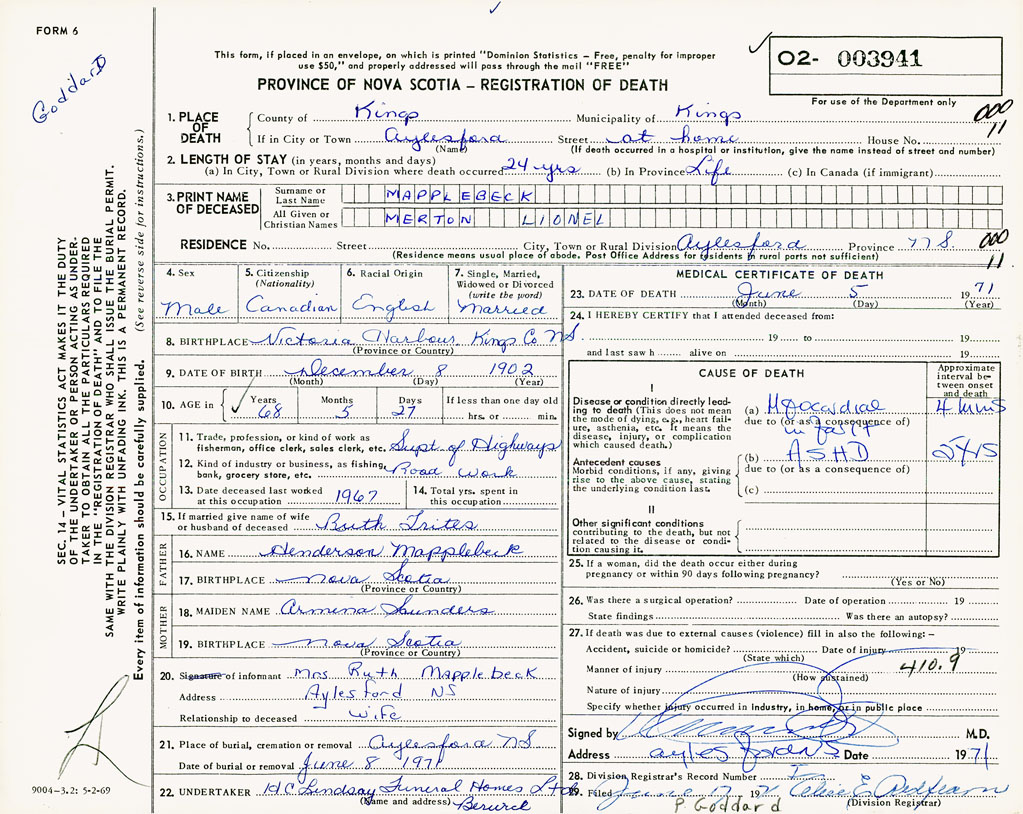 FORM 6
Goddard
This form, if placed in an envelope, on which is printed "Dominion Statistics – Free, penalty for improper
use $50," and properly addressed will pass through the mail "FREE"
PROVINCE OF NOVA SCOTIA – REGISTRATION OF DEATH
02- 003941
For use of the Department only
000
11
1. PLACE OF DEATH
County of Kings Municipality of Kings
If in City or Town Aylesford Street at home House No.
(Name) (If death occurred in a hospital or institution, give the name instead of street and number)
2. LENGTH OF STAY (in years, months and days)
(a) In City, Town or Rural Division where death occurred 24 yrs (b) In Province Life (c) In Canada (if immigrant)
3. PRINT NAME OF DECEASED
Surname or Last Name MAPPLEBECK
All Given or Christian Names MERTON LIONEL
RESIDENCE No. Street City, Town or Rural Division Aylesford Province N S.
(Residence means usual place of abode. Post Office Address for residents in rural parts not sufficient)
000
11
4. Sex
Male
5. Citizenship
(Nationality)
Canadian
6. Racial Origin
English
7. Single, Married,
Widowed or Divorced
(write the word)
Married
8. BIRTHPLACE Victoria Harbour Kings Co. NS
(Province or Country)
9. DATE OF BIRTH December 8 1902
(Month) (Day) (Year)
10. AGE in
Years Months Days If less than one day old
68 5 27 hrs. or min.
OCCUPATION
11. Trade, profession, or kind of work as
fisherman, office clerk, sales clerk, etc. Supt. of Highways
12. Kind of industry or business, as fishing,
bank, grocery store, etc. Road Work
13. Date deceased last worked
at this occupation 1967
14. Total yrs. spent in
this occupation
15. If married give name of wife
or husband of deceased Ruth Trites
FATHER
16. NAME Henderson Mapplebeck
17. BIRTHPLACE Nova Scotia
(Province or Country)
MOTHER
18. MAIDEN NAME Armina Saunders
19. BIRTHPLACE Nova Scotia
(Province or Country)
20. Signature of informant Mrs Ruth Mapplebeck
Address Aylesford NS
Relationship to deceased Wife
21. Place of burial, cremation or removal Aylesford NS
Date of burial or removal June 8 1971
22. UNDERTAKER H C Lindsay Funeral Homes Ltd
(Name and address) Berwick
MEDICAL CERTIFICATE OF DEATH
23. DATE OF DEATH June 5 1971
(Month) (Day) (Year)
24. I HEREBY CERTIFY that I attended deceased from:
19 to 19
and last saw h alive on 19
CAUSE OF DEATH
Approximate
interval be-
tween onset
and death
I
Disease or condition directly lead-
ing to death (This does not mean
the mode of dying, e.g., heart fail-
ure, asthenia, etc. It means the
disease, injury, or complication
which caused death.)
(a) Myocardial 4 mins
due to (or as a consequence of)
infarct
(b) ASHD 5 yrs
due to (or as a consequence of)
(c)
Antecedent causes
Morbid conditions, if any, giving
rise to the above cause, stating
the underlying condition last.
II
Other significant conditions
contributing to the death, but not
related to the disease or condi-
tion causing it.
25. If a woman, did the death occur either during
pregnancy or within 90 days following pregnancy?
(Yes or No)
26. Was there a surgical operation? Date of operation 19
State findings Was there an autopsy?
27. If death was due to external causes (violence) fill in also the following:–
Accident, suicide or homicide? Date of injury 19
(State which)
Manner of injury 410.9
(How sustained)
Nature of injury
Specify whether injury occurred in industry, in home, or in public place
Signed by M.D.
Address Aylesford NS Date 1971
28. Division Registrar's Record Number
29. Filed June 17 1971
(Division Registrar)
P. Goddard
SEC. 14 – VITAL STATISTICS ACT MAKES IT THE DUTY
OF THE UNDERTAKER OR PERSON ACTING AS UNDER-
TAKER TO OBTAIN ALL THE PARTICULARS REQUIRED
IN THE "REGISTRATION OF DEATH" AND FILE THE
SAME WITH THE DIVISION REGISTRAR WHO SHALL ISSUE THE BURIAL PERMIT.
WRITE PLAINLY WITH UNFADING INK. THIS IS A PERMANENT RECORD.
Every item of information should be carefully supplied. (See reverse side for instructions.)
9004–3.2: 5-2-69